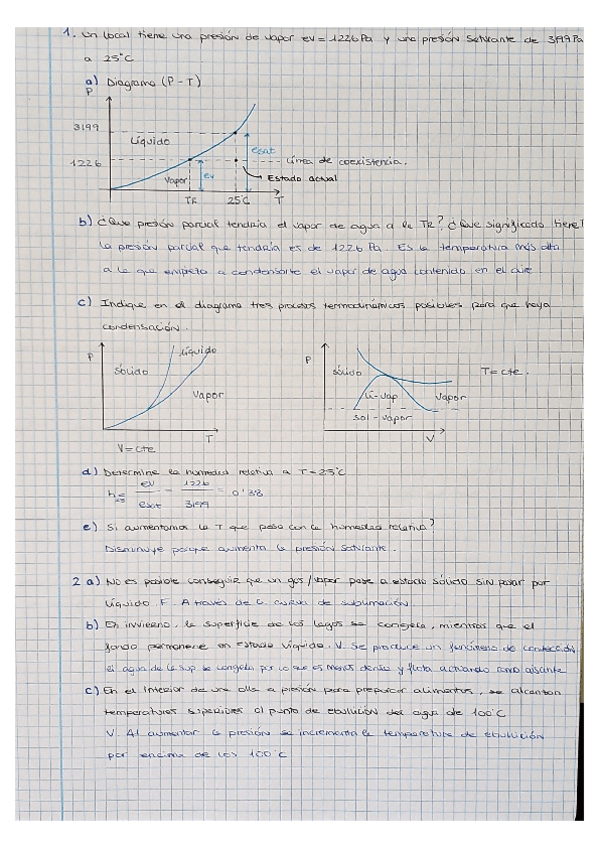 1. Un local tiene una presión de vapor ev = 1226 Pa y una presión saturante de 3199 Pa
a 25°C
a) Diagrama (P - T)
P
3199
Líquido
esat
1226
ev
Línea de coexistencia.
Vapor
Estado actual
TR
25°C
T
b) ¿Que presión parcial tendría el vapor de agua a la TR? ¿Que significado tiene?
La presión parcial que tendría es de 1226 Pa. Es la temperatura más alta
a la que empieza a condensarse el vapor de agua contenido en el aire
c) Indique en el diagrama tres procesos termodinámicos posibles para que haya
condensación.
P
líquido
sólido
Vapor
T
V = cte
P
sólido
T = cte.
lí-vap
Vapor
sol - vapor
V
d) Determine la humedad relativa a T = 25°C
h = ev / esat = 1226 / 3199 = 0'38
e) Si aumentamos la T que pasa con la humedad relativa?
Disminuye porque aumenta la presión saturante.
2 a) No es posible conseguir que un gas/vapor pase a estado sólido sin pasar por
líquido. F. A traves de la curva de sublimación.
b) En invierno, la superficie de los lagos se congela, mientras que el
fondo permanece en estado líquido. V. Se produce un fenómeno de
el agua de la sup se congela por lo que es menos densa y flota actuando como aislante
c) En el interior de una olla a presión para preparar alimentos, se alcanzan
temperaturas superiores al punto de ebullición del agua de 100°C
V. Al aumentar la presión se incrementa la temperatura de ebullución
por encima de los 100°C